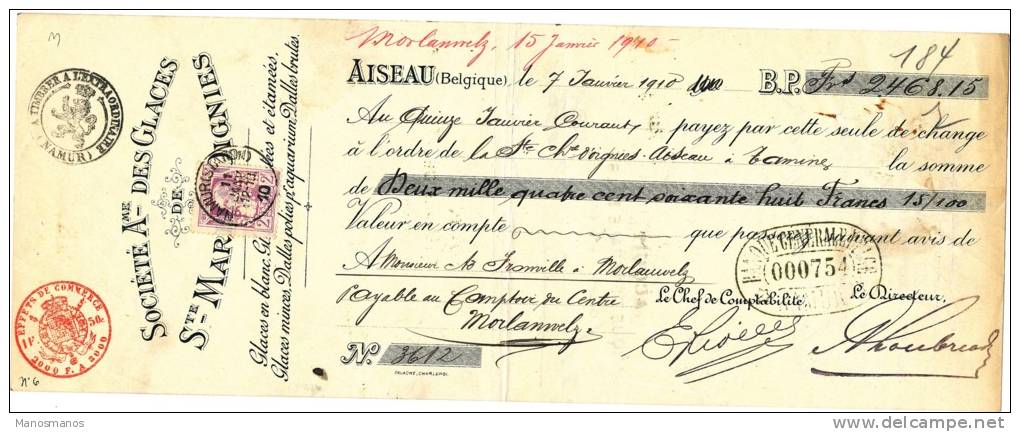 Morlanwelz, 15 Janvier 1910
184
AISEAU (Belgique), le 7 Janvier 1910 B.P. Frs 2468.15
Au Quinze Janvier Courant, payez par cette seule de change
à l'ordre de la Sté Ch. d'Oignies-Aiseau à Tamines la somme
de Deux mille quatre cent soixante huit Francs 15/100
Valeur en compte que passerez suivant avis de
A Monsieur Morlanwelz
Payable au Comptoir du Centre
Morlanwelz
Le Chef de Comptabilité, Le Directeur,
No. 3612
SOCIÉTÉ AME DES GLACES
DE
STE MARIE D'OIGNIES
Glaces en blanc,
Glaces minces, Dalles polies p'aquarium, Dalles brutes.
A TIMBRER A L'EXTRAORDINAIRE
(NAMUR)
EFFETS DE COMMERCE
2000 F. A 2000
10
000754
N° 6
Manosmanos
delcampe.net